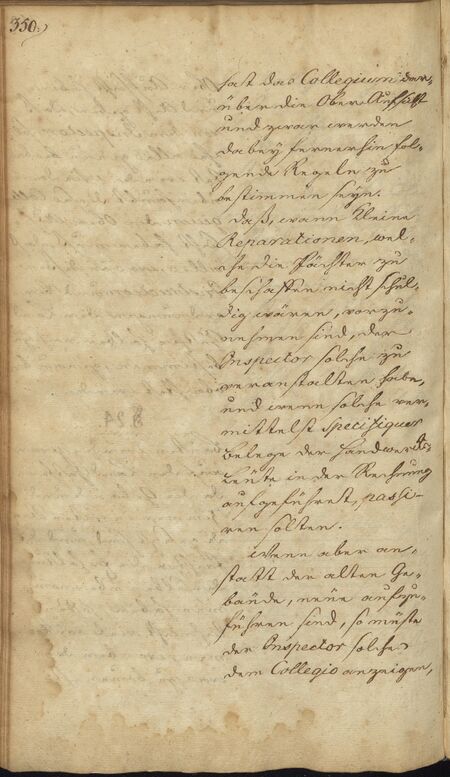 350.)
hat das Collegium dar-
über die Ober-Aufsicht
und zwar werden
dabey fernerhin fol-
gende Regeln zu
bestimmen seyn.
Daß, wann kleine
Reparationen, wel-
che die Pächter zu
beschaffen nicht schul-
dig wären, vorzu-
nehmen sind, der
Inspector solche zu
veranstalten habe,
und wenn solche ver-
mittelst specifiquer
Belege der Handwerks-
Leute in der Rechnung
aufgeführet, passi-
ren solten.
Wenn aber an-
statt der alten Ge-
bäude, neue aufzu-
führen sind, so müste
der Inspector solches
dem Collegio anzeigen,